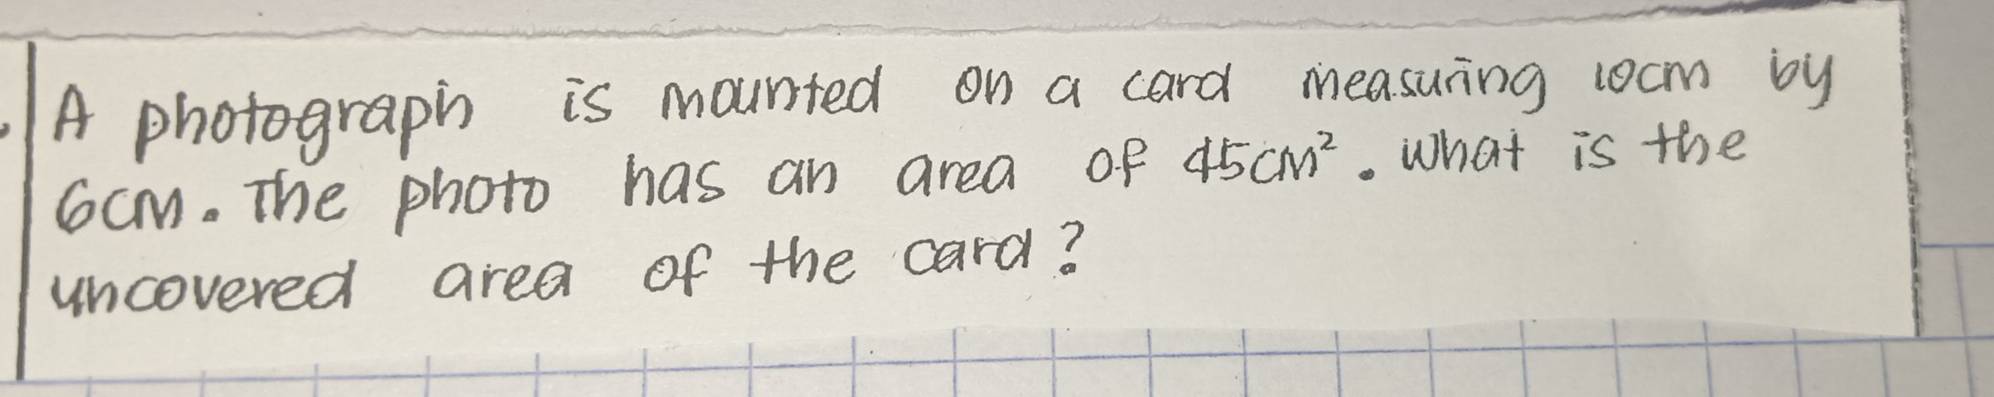 A photograph is mounted on a card measuring 10cm by
6cm. The photo has an area of 45cm². What is the
uncovered area of the card?